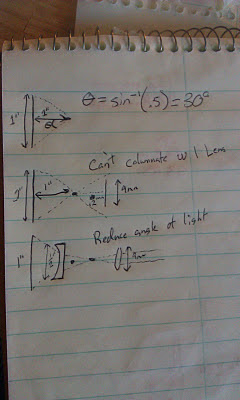 θ = sin⁻¹(.5) = 30°
1"
1"
Can't columnate w/ 1 Lens
1"
1"
9mm
Reduce angle of light
1"
9mm